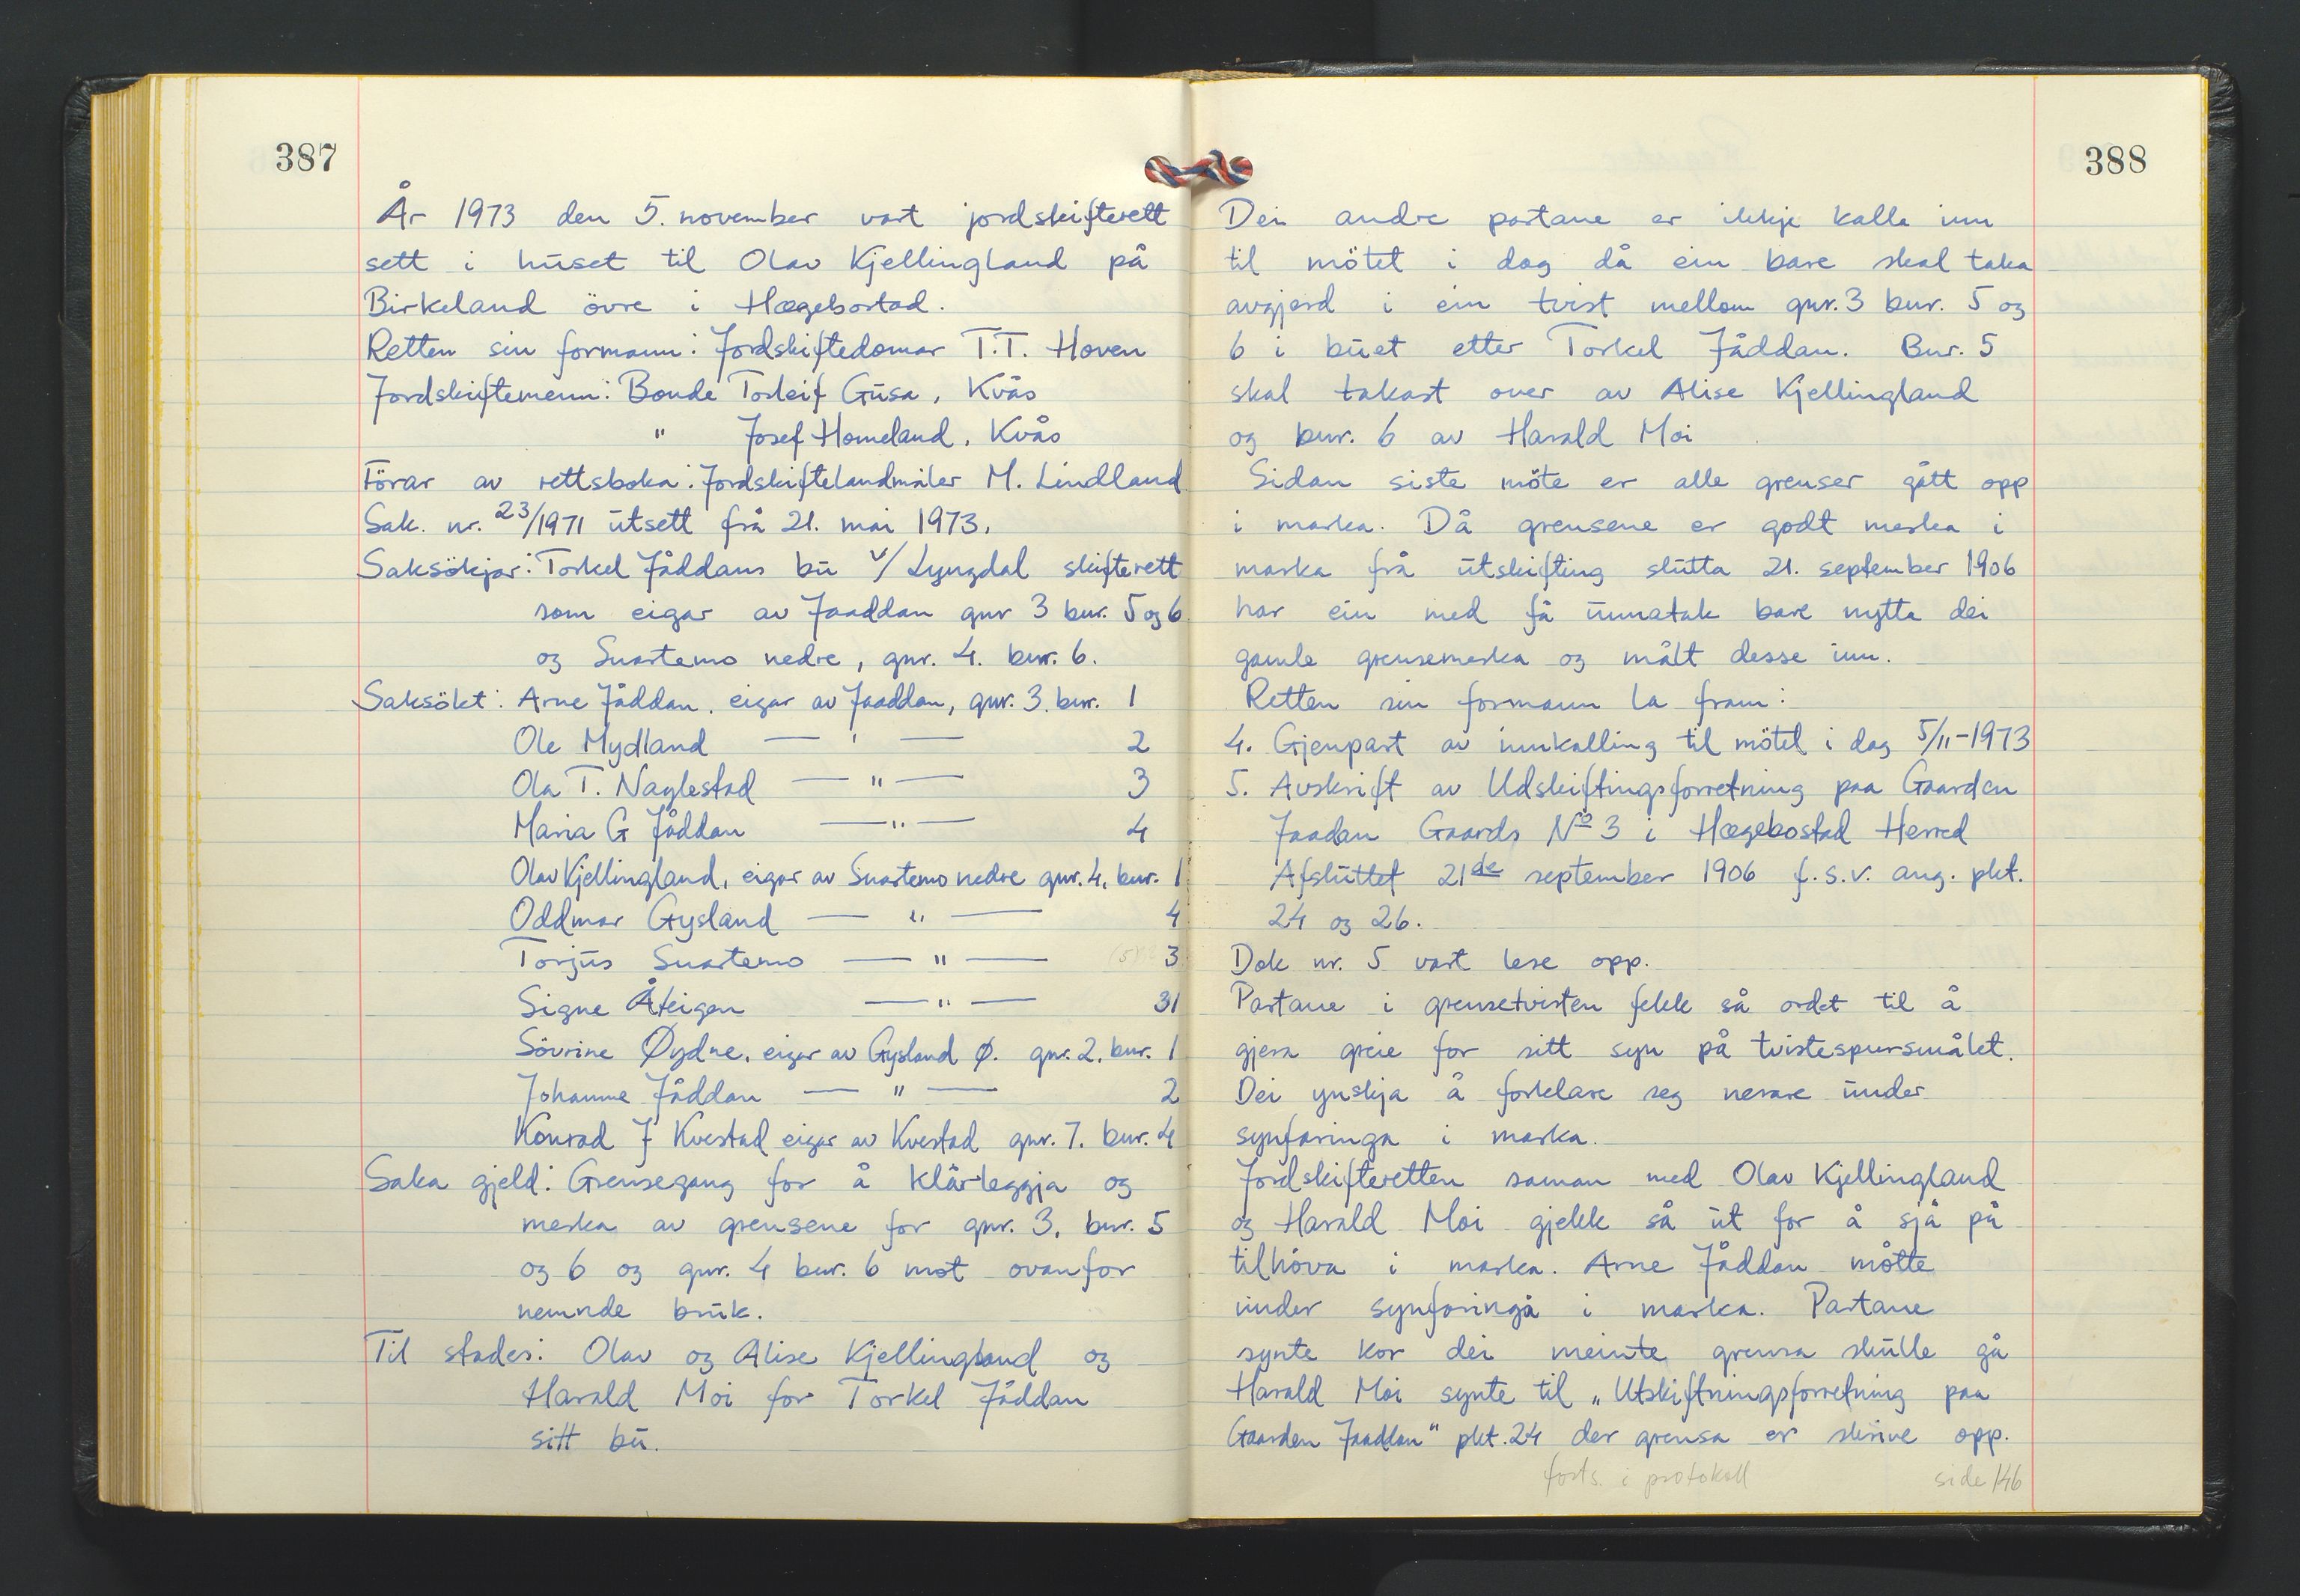 387
År 1973 den 5. november vart jordskifterett
sett i huset til Olav Kjellingland på
Birkeland övre i Hægebostad.
Retten sin formann: Jordskiftedomar T.T. Hoven
Jordskiftemenn: Bonde Torleif Gusa, Kvås
" Josef Homeland, Kvås
Förar av rettsboka: Jordskiftelandmåler M. Lindland
Sak. nr. 23/1971 utsett frå 21. mai 1973.
Saksökjar: Torkel Jåddans bu v/ Lyngdal skifterett
som eigar av Jaaddan gnr 3 bnr. 5 og 6
og Snartemo nedre, gnr. 4. bnr. 6.
Saksökt: Arne Jåddan, eigar av Jaaddan, gnr. 3. bnr. 1
Ole Mydland — " — 2
Ola T. Naglestad — " — 3
Maria G Jåddan — " — 4
Olav Kjellingland, eigar av Snartemo nedre gnr. 4, bnr. 1
Oddmar Gysland — " — 4
Torjus Snartemo — " — (5) 3
Signe Åteigen — " — 31
Sövrine Øydne, eigar av Gysland Ø. gnr. 2, bnr. 1
Johanne Jåddan — " — 2
Konrad J Kvestad eigar av Kvestad gnr. 7. bnr. 4
Saka gjeld: Grensegang for å klårleggja og
merka av grensene for gnr. 3, bnr. 5
og 6 og gnr. 4 bnr. 6 mot ovanfor
nemnde bruk.
Til stades: Olav og Alise Kjellingland og
Harald Moi for Torkel Jåddan
sitt bu.
388
Dei andre partane er ikkje kalla inn
til mötet i dag då ein bare skal taka
avgjerd i ein tvist mellom gnr. 3 bnr. 5 og
6 i buet etter Torkel Jåddan. Bnr. 5
skal takast over av Alise Kjellingland
og bnr. 6 av Harald Moi
Sidan siste möte er alle grenser gått opp
i marka. Då grensene er godt merka i
marka frå utskifting slutta 21. september 1906
har ein med få unnatak bare nytta dei
gamle grensemerka og målt desse inn.
Retten sin formann la fram:
4. Gjenpart av innkalling til mötet i dag 5/11-1973
5. Avskrift av Udskiftingsforretning paa Gaarden
Jaadan Gaards No 3 i Hægebostad Herred
Afsluttet 21de september 1906 f.s.v. ang. pkt.
24 og 26.
Dok nr. 5 vart lese opp.
Partane i grensetvisten fekk så ordet til å
gjera greie for sitt syn på tvistespursmålet.
Dei ynskja å forklare seg nerare under
synfaringa i marka.
Jordskifteretten saman med Olav Kjellingland
og Harald Moi gjekk så ut for å sjå på
tilhöva i marka. Arne Jåddan mötte
under synfaringa i marka. Partane
synte kor dei meinte grensa skulle gå
Harald Moi synte til „Utskiftningsforretning paa
Gaarden Jaaddan" pkt. 24 der grensa er skrive opp.
forts. i protokoll side 146